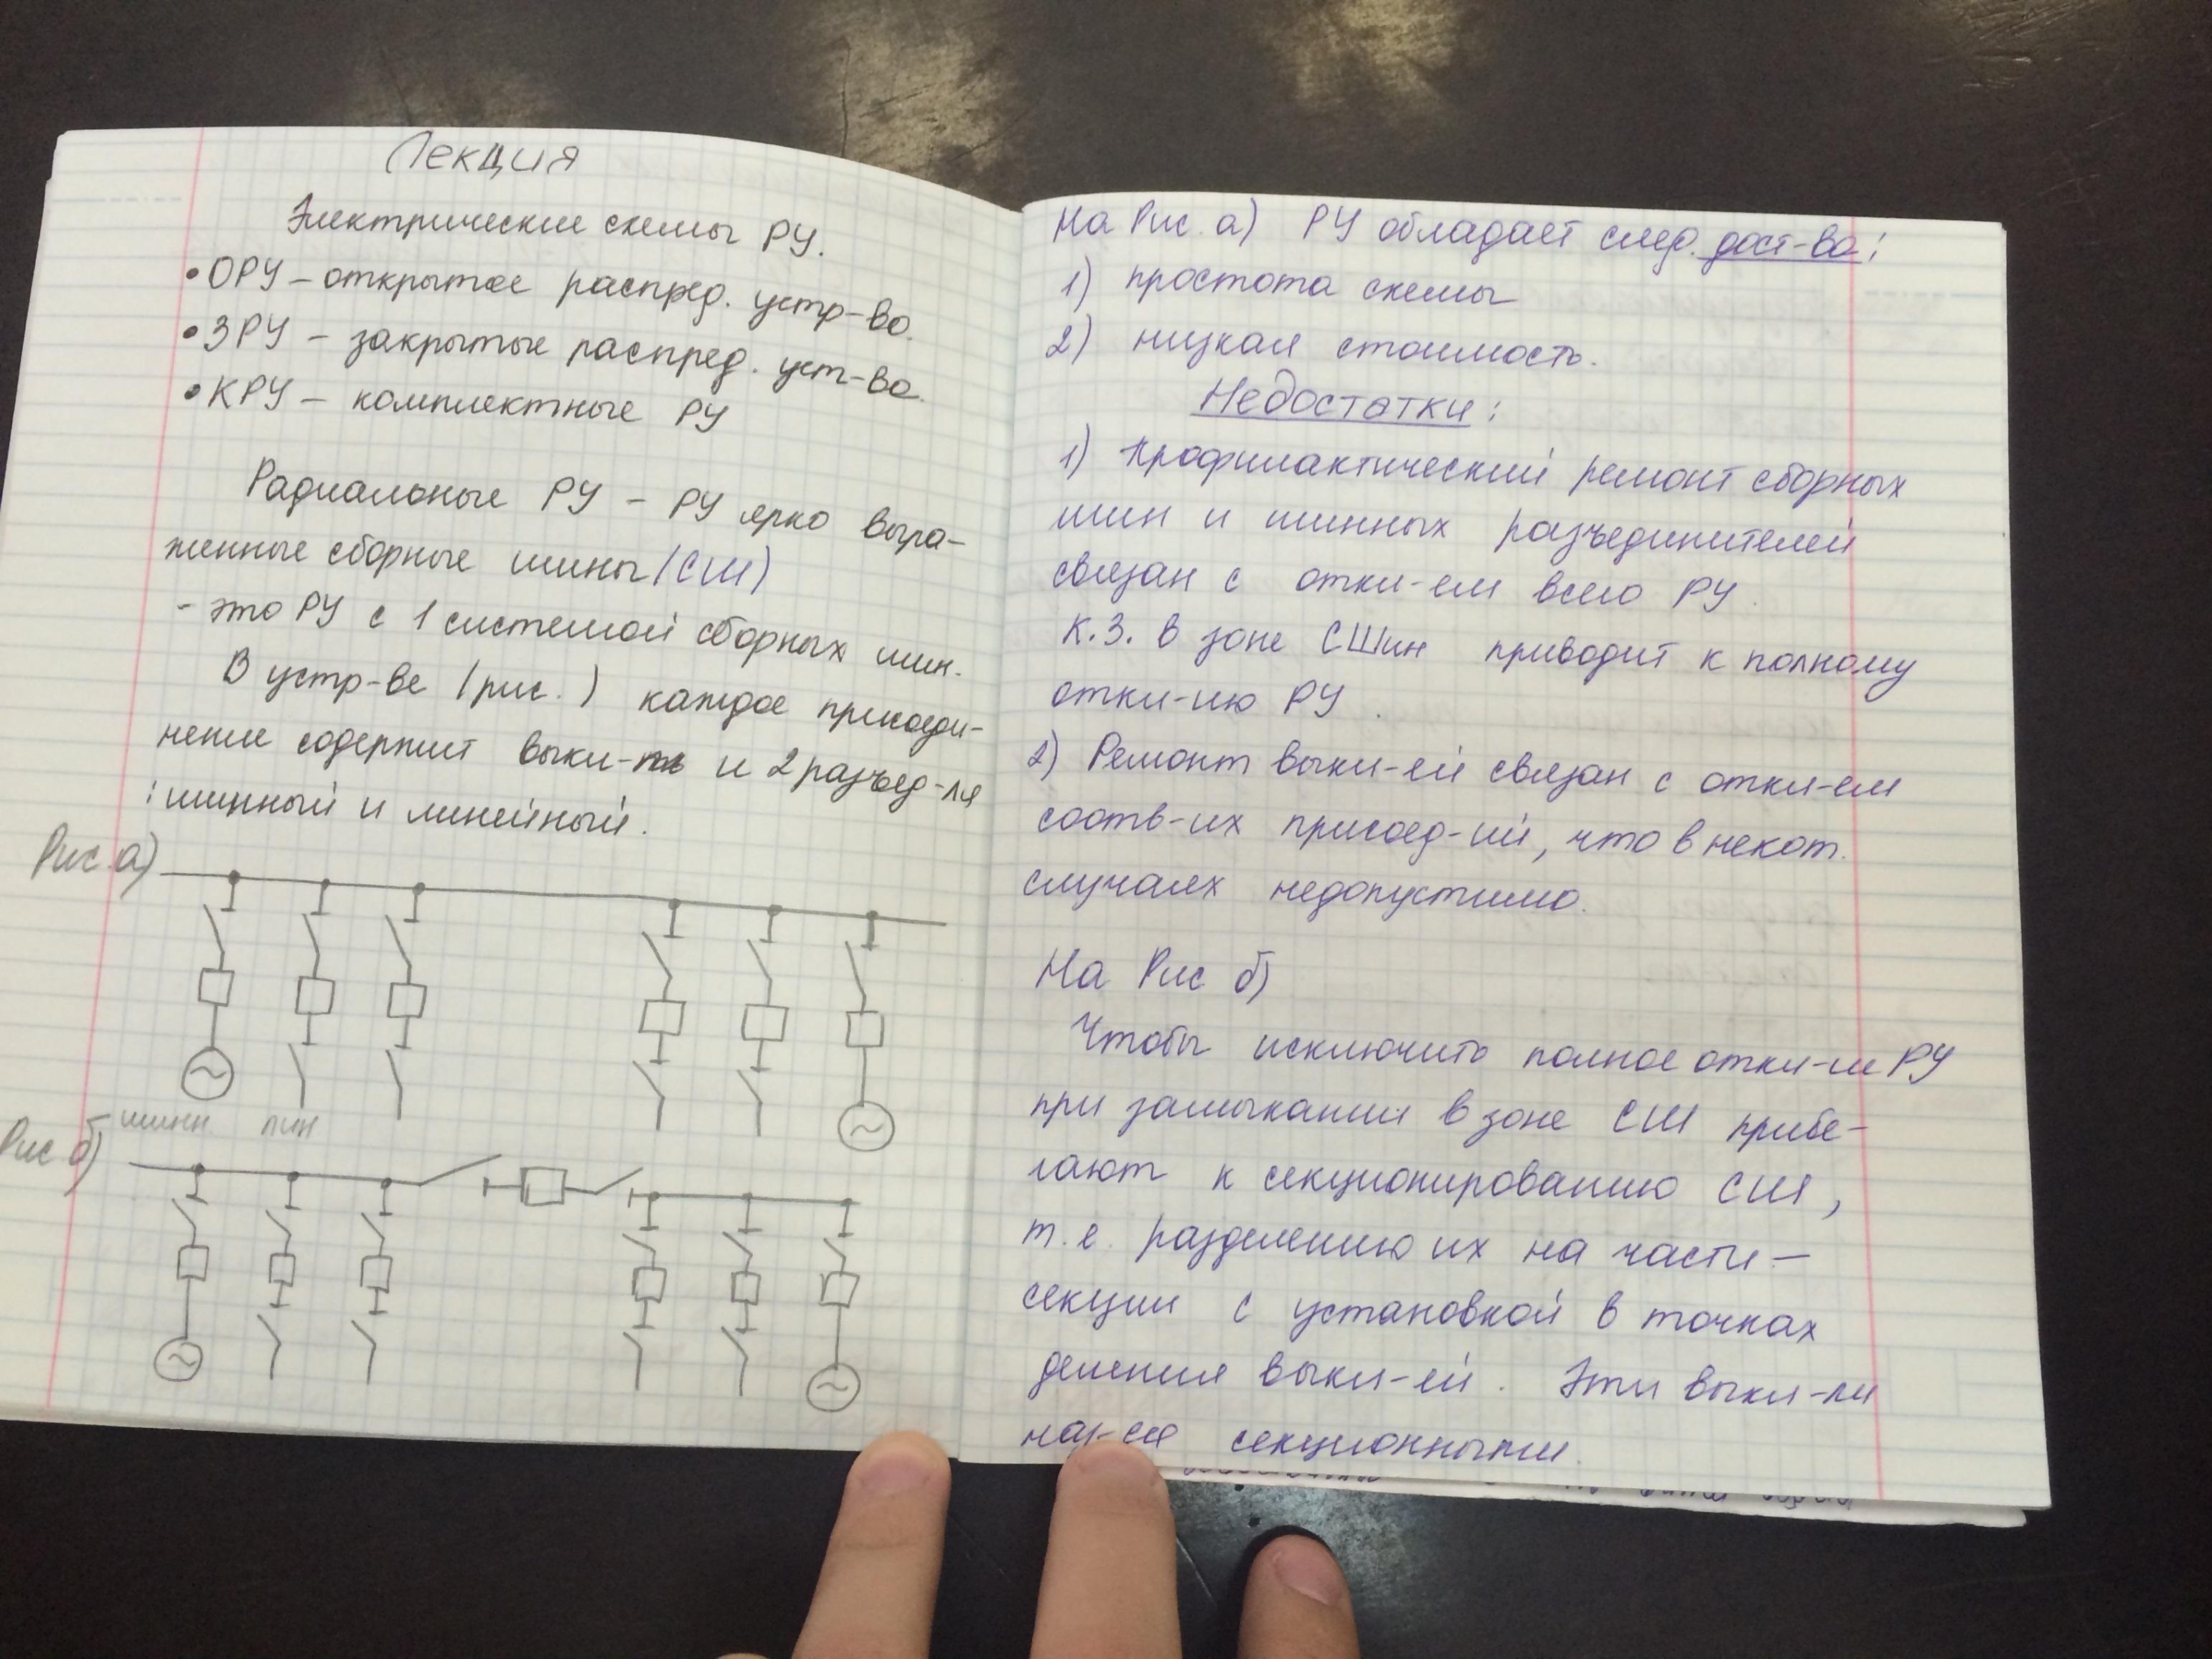 Лекция
Электрические схемы РУ.
• ОРУ – открытое распред. устр-во.
• ЗРУ – закрытые распред. уст-ва.
• КРУ – комплектные РУ
Радиальные РУ – РУ ярко выра-
женные сборные шины (СШ)
- это РУ с 1 системой сборных шин.
В устр-ве (рис. ) каждое присоеди-
нение содержит выкл-ль и 2 разъед-ля
: шинный и линейный.
Рис. а)
шинн. лин
Рис б)
На Рис. а) РУ обладает след. дост-ва:
1) простота схемы
2) низкая стоимость.
Недостатки:
1) Профилактический ремонт сборных
шин и шинных разъединителей
связан с откл-ем всего РУ.
К.З. в зоне СШин приводит к полному
откл-ию РУ.
2) Ремонт выкл-ей связан с откл-ем
соотв-их присоед-ий, что в некот.
случаях недопустимо.
На Рис б)
Чтобы исключить полное откл-ие РУ
при замыкании в зоне СШ прибе-
гают к секционированию СШ,
т.е. разделению их на части –
секции с установкой в точках
деления выкл-ей. Эти выкл-ли
наз-ся секционными.